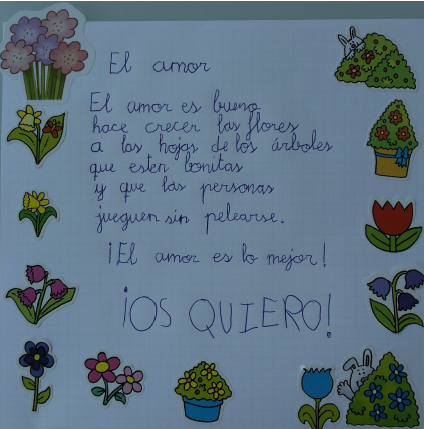 El amor
El amor es bueno
hace crecer las flores
a las hojas de los árboles
que esten bonitas
y que las personas
jueguen sin pelearse.
¡El amor es lo mejor!
¡OS QUIERO!